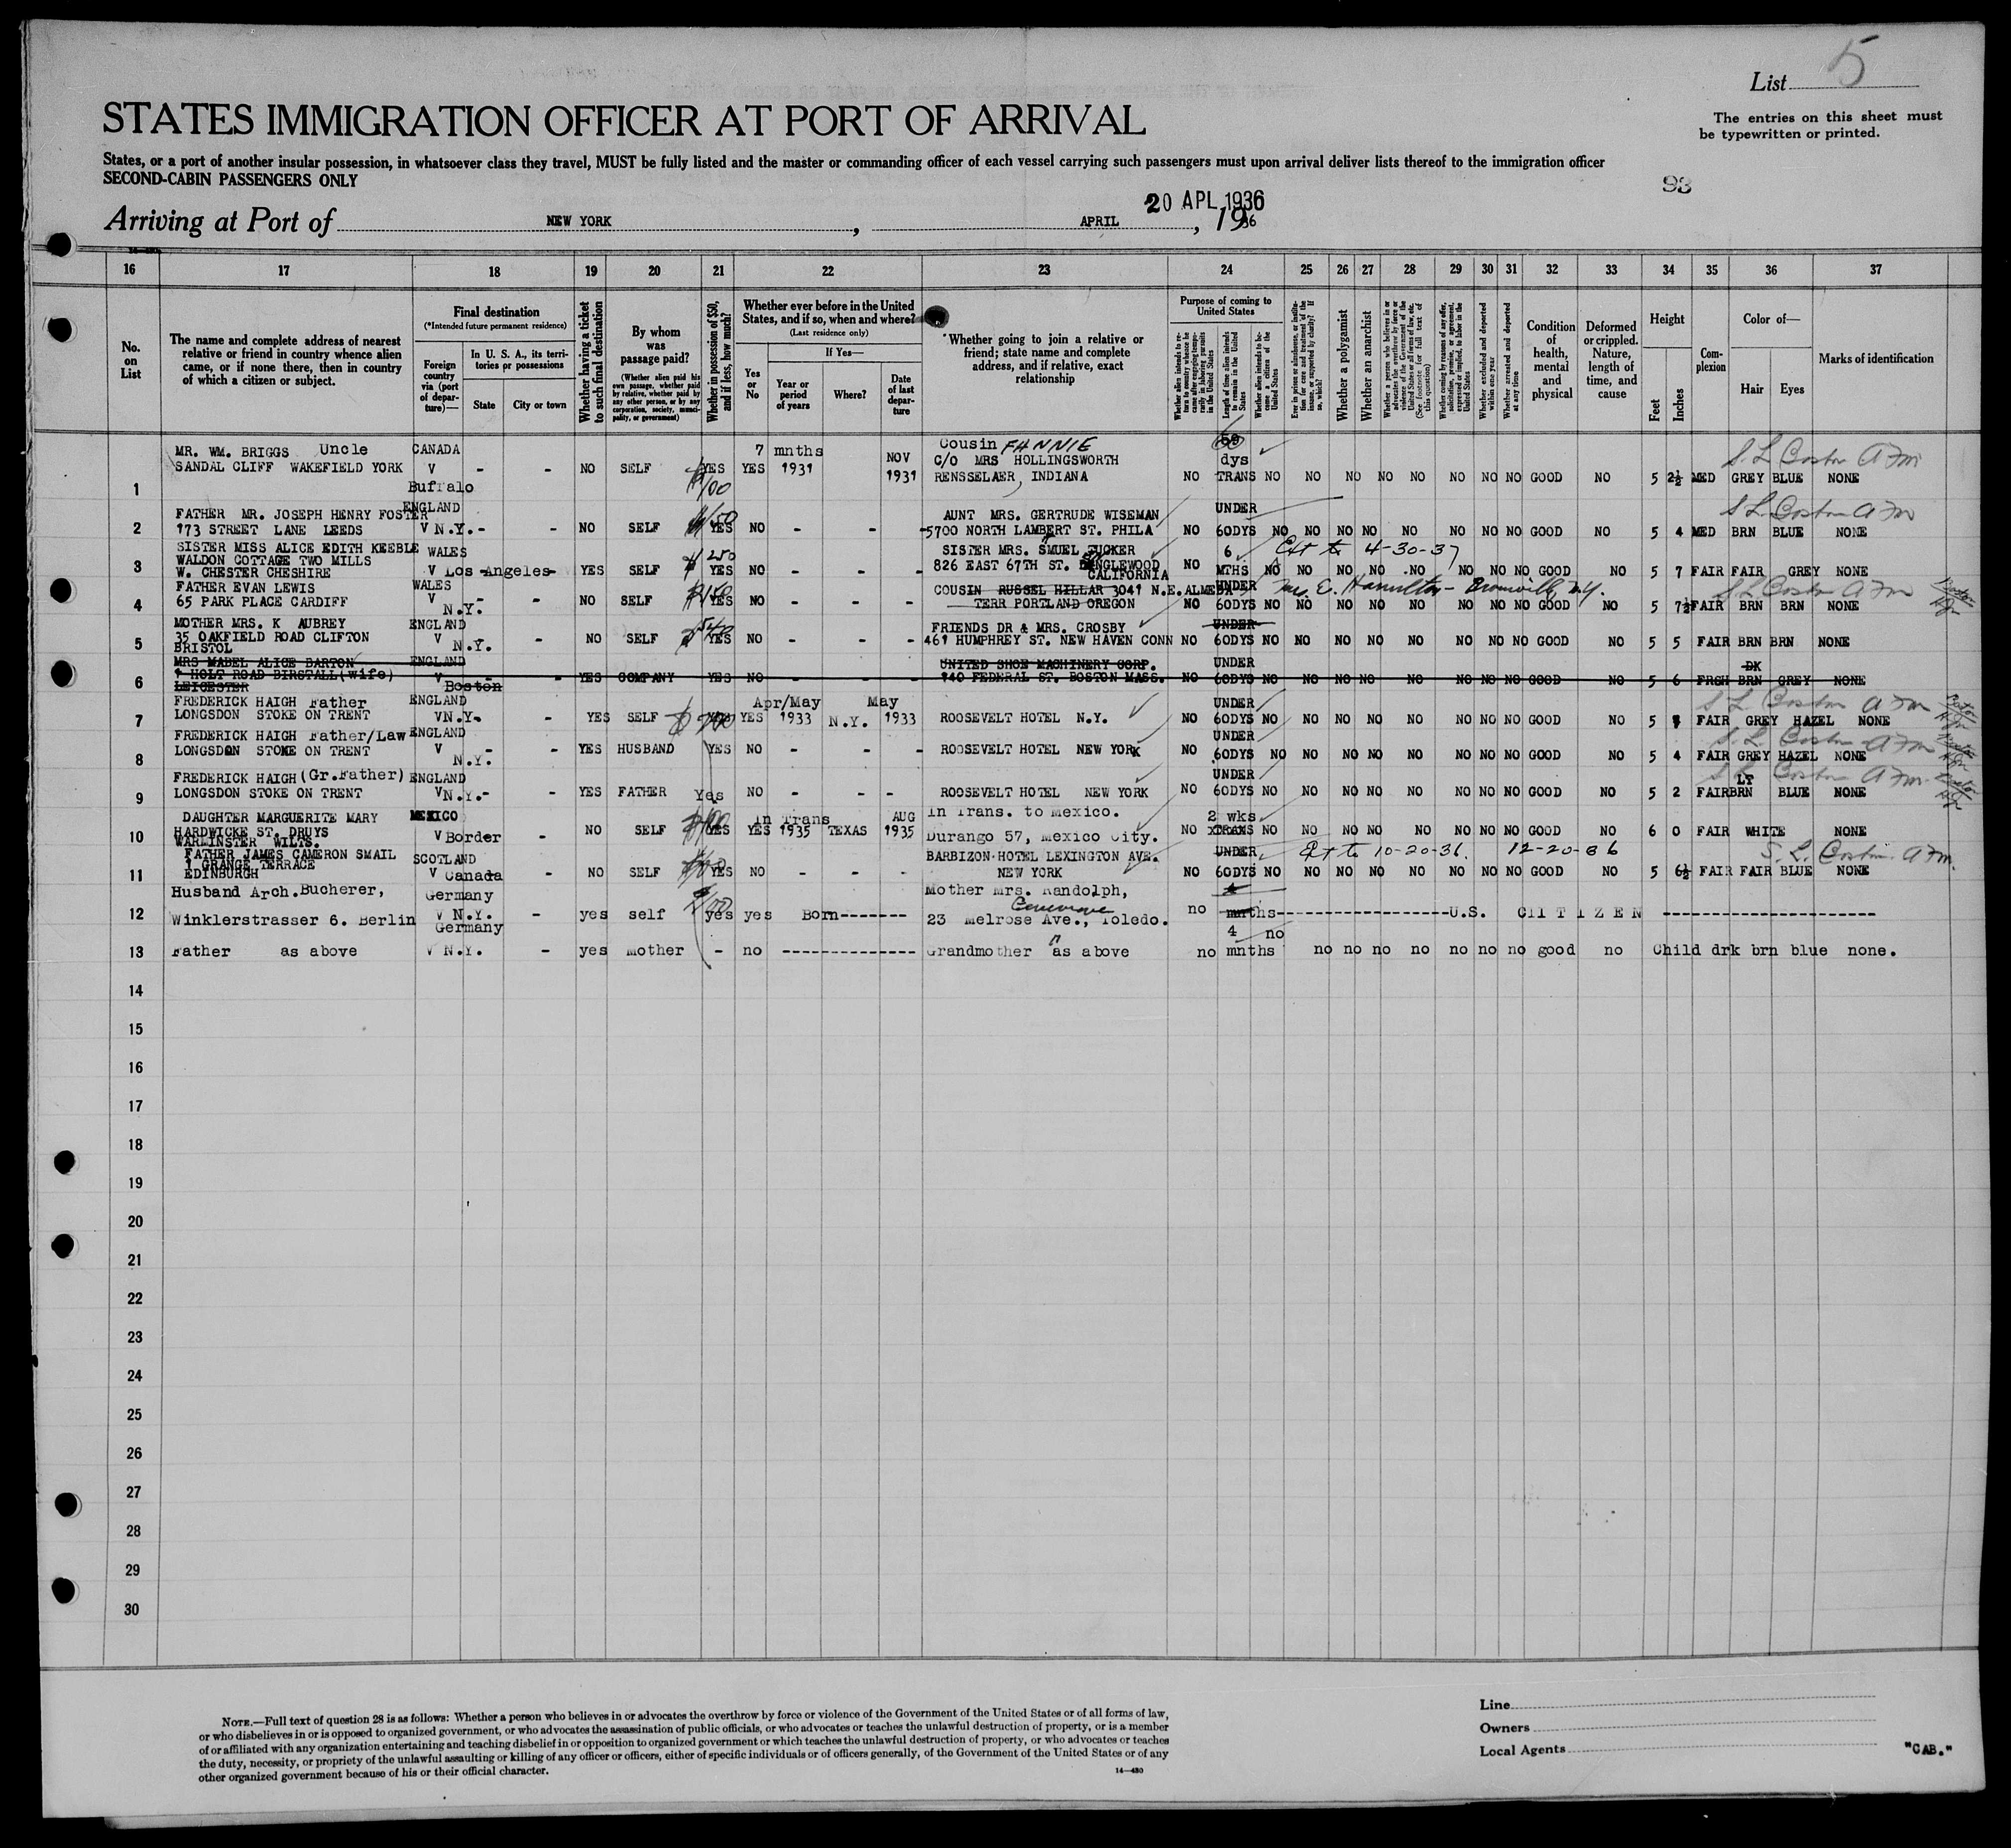 List 5
The entries on this sheet must
be typewritten or printed.
STATES IMMIGRATION OFFICER AT PORT OF ARRIVAL
States, or a port of another insular possession, in whatsoever class they travel, MUST be fully listed and the master or commanding officer of each vessel carrying such passengers must upon arrival deliver lists thereof to the immigration officer
SECOND-CABIN PASSENGERS ONLY
93
20 APL 1936
Arriving at Port of NEW YORK, APRIL, 1936
16 17 18 19 20 21 22 23 24 25 26 27 28 29 30 31 32 33 34 35 36 37
No. on List
The name and complete address of nearest
relative or friend in country whence alien
came, or if none there, then in country
of which a citizen or subject.
Final destination
(*Intended future permanent residence)
Foreign country via (port of departure)—
In U. S. A., its territories or possessions
State
City or town
Whether having a ticket to such final destination
By whom was passage paid?
(Whether alien paid his own passage, whether paid by relative, whether paid by any other person, or by any corporation, society, municipality, or government)
Whether in possession of $50, and if less, how much?
Whether ever before in the United States, and if so, when and where?
(Last residence only)
Yes or No
If Yes—
Year or period of years
Where?
Date of last departure
*Whether going to join a relative or
friend; state name and complete
address, and if relative, exact
relationship
Purpose of coming to United States
Whether alien intends to return to country whence he came after engaging temporarily in laboring pursuits in the United States
Length of time alien intends to remain in the United States
Whether alien intends to become a citizen of the United States
Ever in prison or almshouse, or institution for care and treatment of the insane, or supported by charity? If so, which?
Whether a polygamist
Whether an anarchist
Whether a person who believes in or advocates the overthrow by force or violence of the Government of the United States or all forms of law, etc. (See footnote for full text of this question)
Whether coming by reasons of any offer, solicitation, promise, or agreement, expressed or implied, to labor in the United States
Whether excluded and deported within one year
Whether arrested and deported at any time
Condition of health, mental and physical
Deformed or crippled. Nature, length of time, and cause
Height
Feet
Inches
Complexion
Color of—
Hair
Eyes
Marks of identification
MR. WM. BRIGGS Uncle CANADA 7 mnths NOV Cousin FANNIE dys
1 SANDAL CLIFF WAKEFIELD YORK V - - Buffalo NO SELF YES YES 1931 1931 C/O MRS HOLLINGSWORTH RENSSELAER, INDIANA NO TRANS NO NO NO NO NO NO NO NO GOOD NO 5 2½ MED GREY BLUE NONE
FATHER MR. JOSEPH HENRY FOSTER ENGLAND AUNT MRS. GERTRUDE WISEMAN UNDER
2 173 STREET LANE LEEDS V N.Y. - - NO SELF YES NO - - - 5700 NORTH LAMBERT ST. PHILA NO 60DYS NO NO NO NO NO NO NO NO GOOD NO 5 4 MED BRN BLUE NONE
SISTER MISS ALICE EDITH KEEBLE WALES 250 SISTER MRS. SMUEL TUCKER 6 Ext to 4-30-37
3 WALDON COTTAGE TWO MILLS W. CHESTER CHESHIRE V Los Angeles YES SELF YES NO - - - 826 EAST 67TH ST. INGLEWOOD CALIFORNIA NO MTHS NO NO NO NO NO NO NO NO GOOD NO 5 7 FAIR FAIR GREY NONE
FATHER EVAN LEWIS WALES COUSIN RUSSEL HILLAR 3041 N.E. ALMEDA UNDER Mrs. E. Hamilton
4 65 PARK PLACE CARDIFF V - - N.Y. NO SELF YES NO - - - TERR PORTLAND OREGON NO 60DYS NO NO NO NO NO NO NO NO GOOD NO 5 7½ FAIR BRN BRN NONE
MOTHER MRS. K AUBREY ENGLAND FRIENDS DR & MRS. CROSBY UNDER
5 35 OAKFIELD ROAD CLIFTON BRISTOL V - - N.Y. NO SELF YES NO - - - 461 HUMPHREY ST. NEW HAVEN CONN NO 60DYS NO NO NO NO NO NO NO NO GOOD NO 5 5 FAIR BRN BRN NONE
MRS MABEL ALICE BARTON ENGLAND UNITED SHOE MACHINERY CORP. UNDER DK
6 1 HOLT ROAD BIRSTALL (Wife) LEICESTER V - - Boston YES COMPANY YES NO - - - 140 FEDERAL ST. BOSTON MASS. NO 60DYS NO NO NO NO NO NO NO NO GOOD NO 5 6 FRGH BRN GREY NONE
FREDERICK HAIGH Father ENGLAND Apr/May May UNDER
7 LONGSDON STOKE ON TRENT V N.Y. - - YES SELF YES 1933 N.Y. 1933 ROOSEVELT HOTEL N.Y. NO 60DYS NO NO NO NO NO NO NO NO GOOD NO 5 FAIR GREY HAZEL NONE
FREDERICK HAIGH Father/Law ENGLAND UNDER
8 LONGSDON STOKE ON TRENT V - - N.Y. YES HUSBAND YES NO - - - ROOSEVELT HOTEL NEW YORK NO 60DYS NO NO NO NO NO NO NO NO GOOD NO 5 4 FAIR GREY HAZEL NONE
FREDERICK HAIGH (Gr.Father) ENGLAND UNDER LT
9 LONGSDON STOKE ON TRENT V N.Y. - - YES FATHER Yes NO - - - ROOSEVELT HOTEL NEW YORK NO 60DYS NO NO NO NO NO NO NO NO GOOD NO 5 2 FAIR BRN BLUE NONE
DAUGHTER MARGUERITE MARY MEXICO in Trans AUG In Trans. to Mexico. 2 wks
10 HARDWICKE ST. DRUYS WARMINSTER WILTS. V Border - NO SELF YES YES 1935 TEXAS 1935 Durango 57, Mexico City. NO TRANS NO NO NO NO NO NO NO NO GOOD NO 6 0 FAIR WHITE NONE
FATHER JAMES CAMERON SMAIL SCOTLAND BARBIZON-HOTEL LEXINGTON AVE. UNDER Ext to 10-20-36. 12-20-36
11 1 GRANGE TERRACE EDINBURGH V Canada - NO SELF YES NO - - - NEW YORK NO 60DYS NO NO NO NO NO NO NO NO GOOD NO 5 6½ FAIR FAIR BLUE NONE
Husband Arch. Bucherer, Germany Mother Mrs. Randolph,
12 Winklerstrasser 6. Berlin V N.Y. - yes self yes yes Born------- 23 Melrose Ave., Toledo. no mnths-----------------U.S. CIITIZEN --------------------
Germany 4 no
13 Father as above V N.Y. - yes mother - no -------------- Grandmother as above no mnths no no no no no no no good no Child drk brn blue none.
14
15
16
17
18
19
20
21
22
23
24
25
26
27
28
29
30
NOTE.—Full text of question 28 is as follows: Whether a person who believes in or advocates the overthrow by force or violence of the Government of the United States or of all forms of law,
or who disbelieves in or is opposed to organized government, or who advocates the assassination of public officials, or who advocates or teaches the unlawful destruction of property, or is a member
of or affiliated with any organization entertaining and teaching disbelief in or opposition to organized government or which teaches the unlawful destruction of property, or who advocates or teaches
the duty, necessity, or propriety of the unlawful assaulting or killing of any officer or officers, either of specific individuals or of officers generally, of the Government of the United States or of any
other organized government because of his or their official character.
14—480
Line
Owners
Local Agents
"CAB."